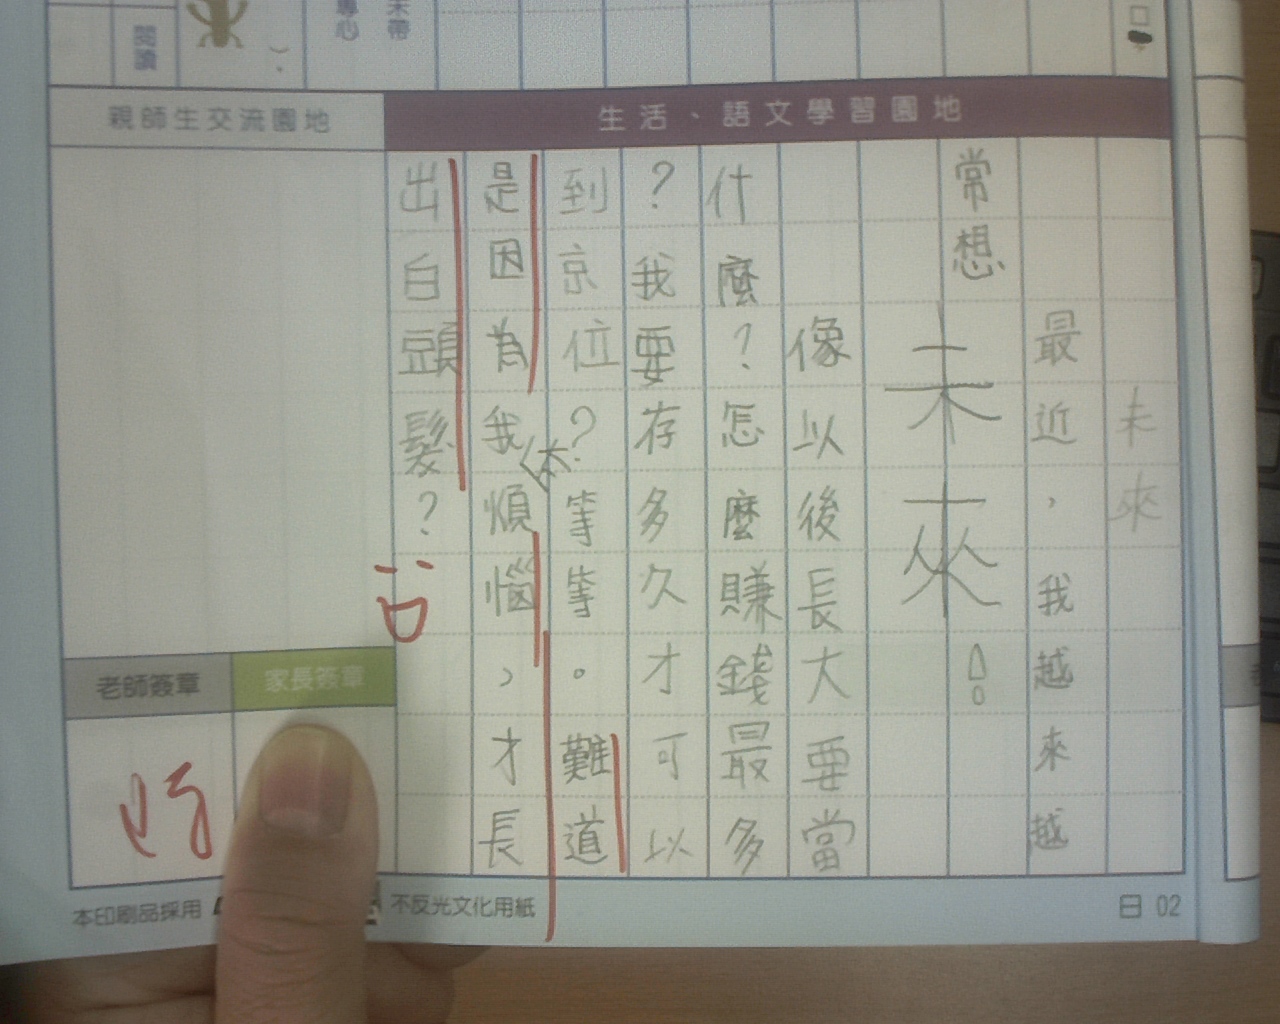 閱讀
專心
未帶
親師生交流園地
生活、語文學習園地
未來
最近，我越來越
常想未來！
像以後長大要當
什麼？怎麼賺錢最多
？我要存多久才可以
到京位？等等。難道
是因為我煩惱，才長
出白頭髮？
老師簽章
家長簽章
本印刷品採用
不反光文化用紙
日 02